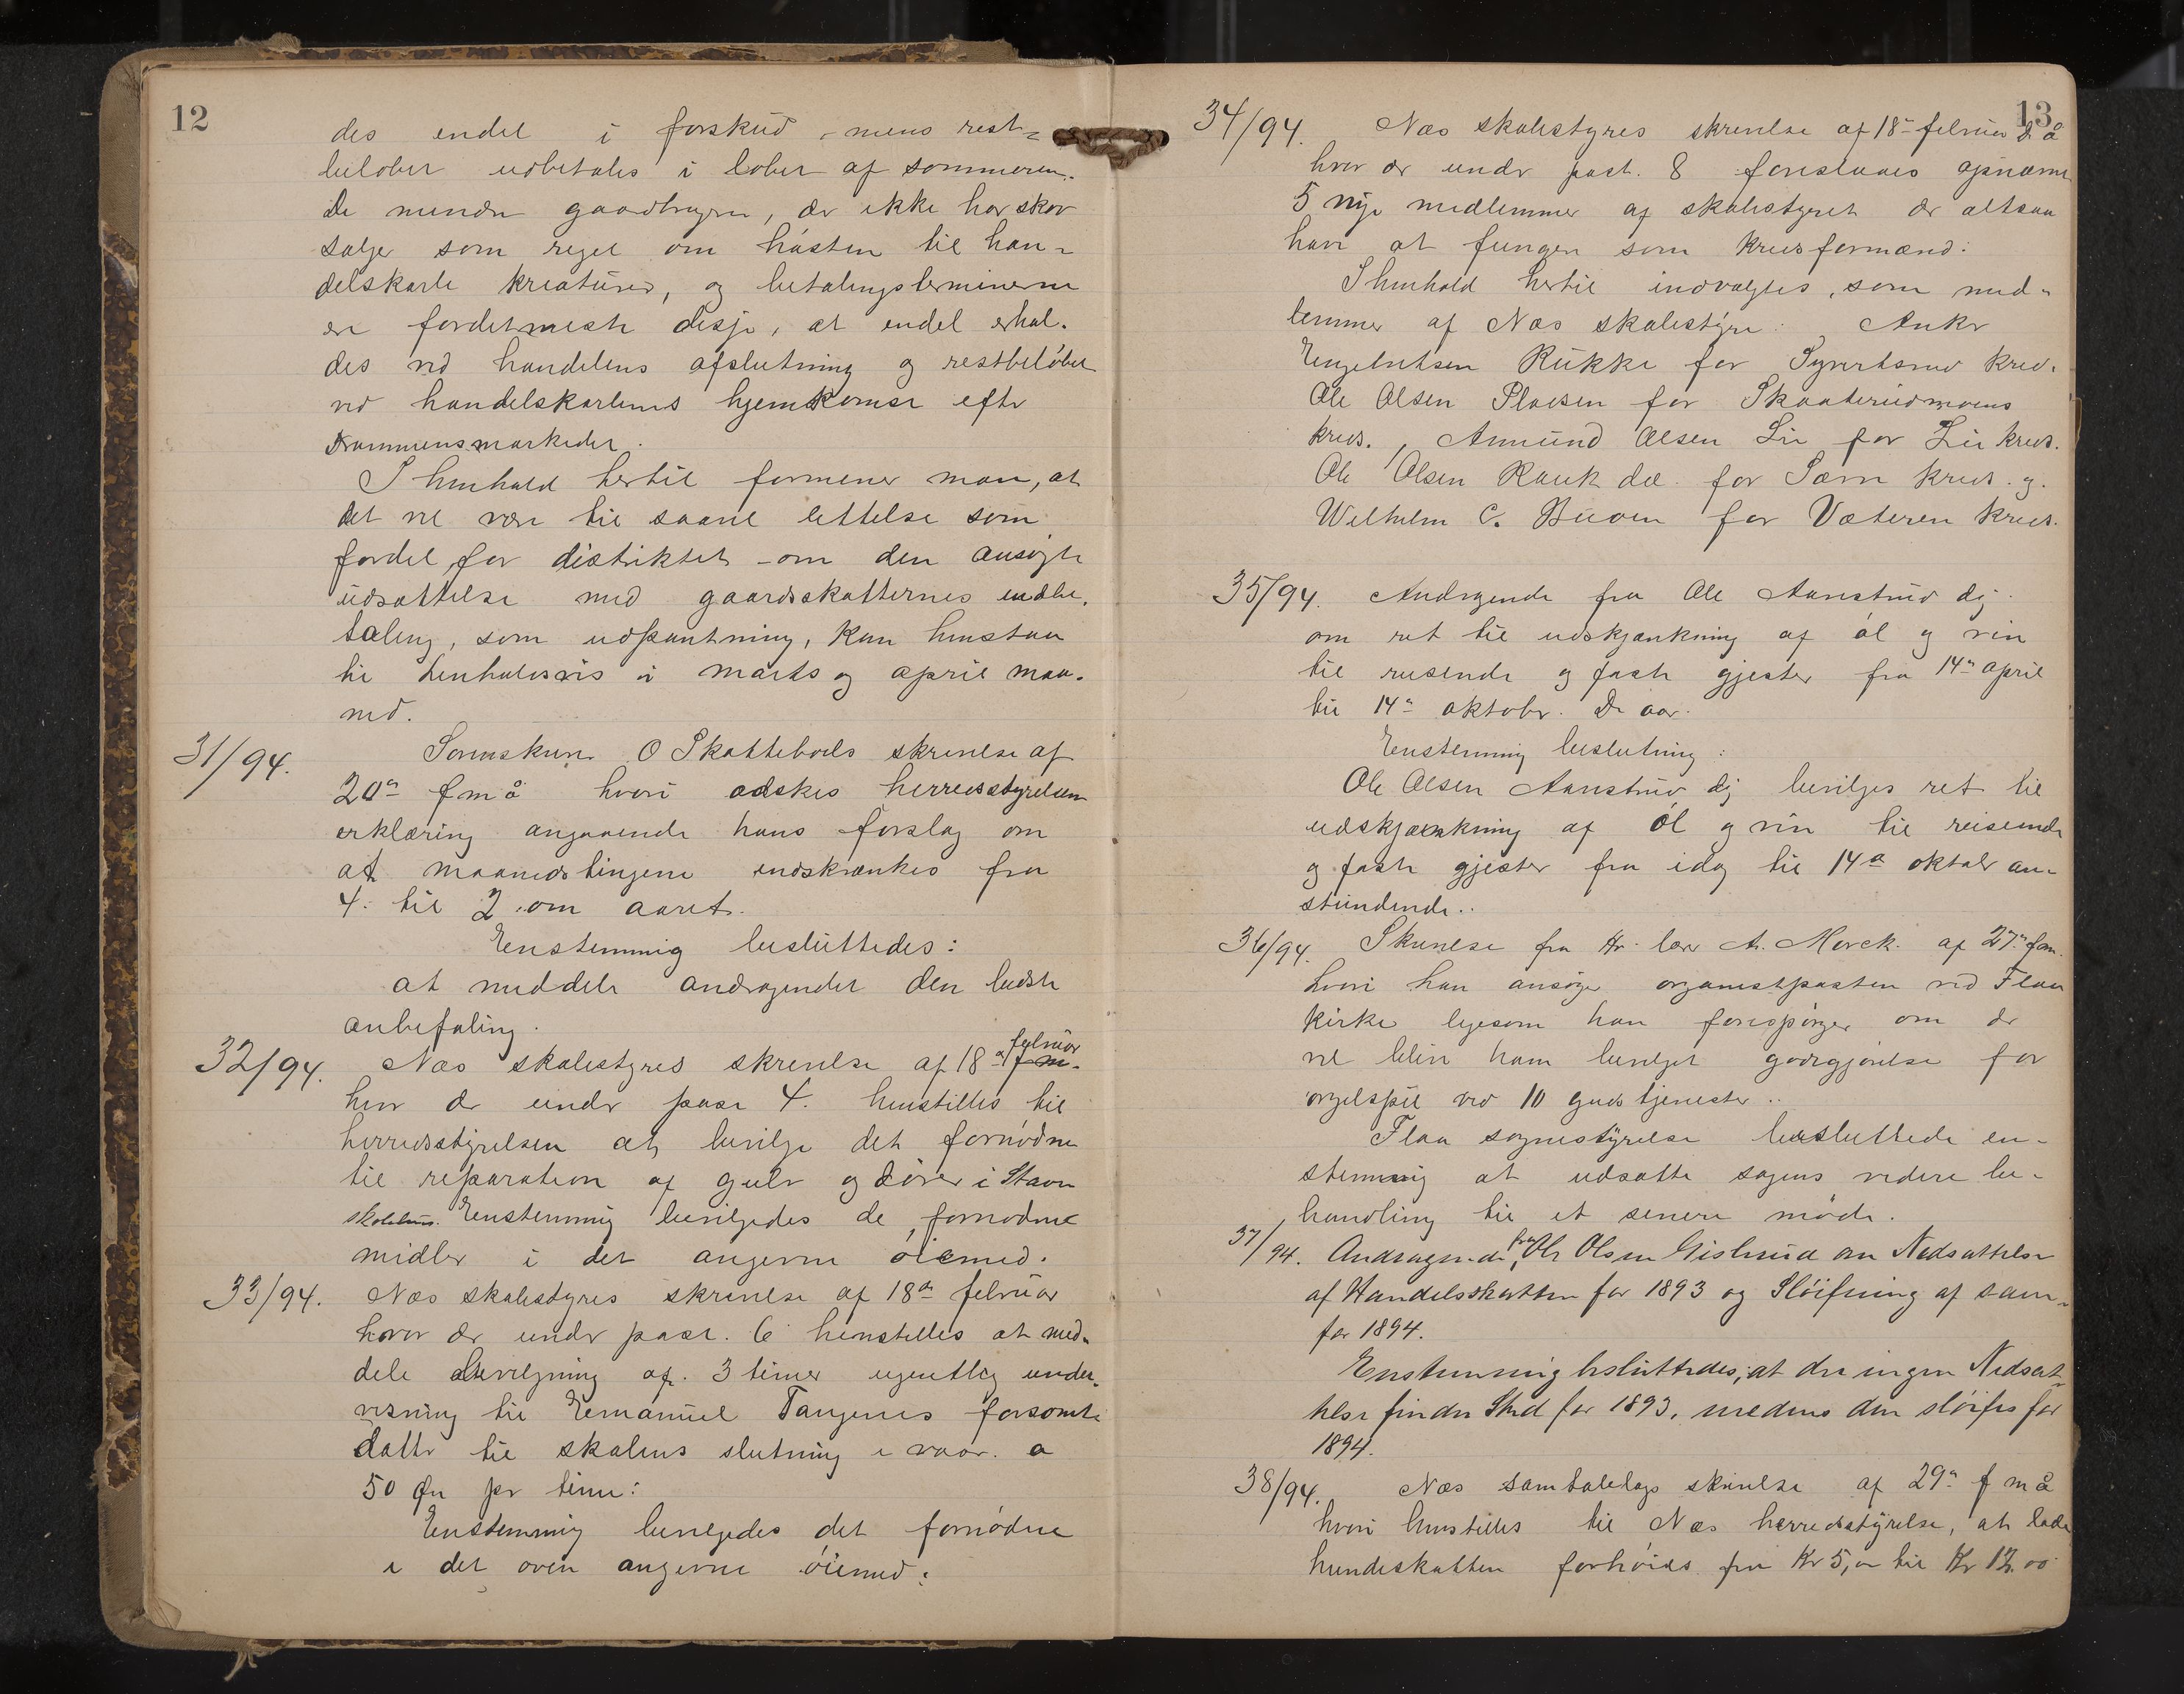 12
des endel i forskud - mens rest-
beløbet udbetales i løbet af sommeren.
De mindre gaardbrugere, der ikke har skov
sælge som regel om høsten til han-
delskarle kreaturer, og betalingsterminerne
er fordetmeste disse, at endel erhol-
des ved handelens afslutning og restbeløbet
ved handelskarlens hjemkomst efter
Drammensmarkedet.
I henhold hertil formener man, at
det vil være til saavel lettelse som
fordel for distriktet - om den ansøgte
udsættelse med gaardsskatternes indbe-
taling, som udpantning, kan henstaa
til henholdsvis i marts og april maa-
ned.
31/94.
Sorenskriver O Skattebøls skrivelse af
20de f m å hvori adskes herredsstyrelsens
erklæring angaaende hans forslag om
at maanedstingene indskrænkes fra
4. til 2 om aaret.
Enstemmig besluttedes:
at meddele andragendet den bedste
anbefaling.
32/94.
Næs skolestyres skrivelse af 18de februar
hvor der under post 4. henstilles til
herredsstyrelsen at bevilge det fornødne
til reparation af gulv og døre i Stavn
skolehus. Enstemmig bevilgedes de fornødne
midler i det angivne øiemed.
33/94.
Næs skolestyres skrivelse af 18de februar
hvor der under post. 6 henstilles at med-
dele bevilgning af 3 timer ugentlig under-
visning til Emanuel Tangens forsømte
datter til skolens slutning i vaar. a
50 Øre pr time:
Enstemmig bevilgedes det fornødne
i det oven angivne øiemed:
13
34/94.
Næs skolestyres skrivelse af 18de februar d. å
hvor der under post. 8 foreslaaes opnævnt
5 nye medlemmer af skolestyret der altsaa
have at fungere som kredsformænd:
I henhold hertil indvalgtes, som med-
lemmer af Næs skolestyre: Anker
Engebretsen Rukke for Syvertsrud kred.
Ole Olsen Pladsen for Skaaterudmoens
kreds., Amund Olsen Lie for Lie kreds.
Ole Olsen Rauk dæ. for Særn kreds. og.
Wilhelm C. Buøen for Væteren kreds.
35/94.
Andragende fra Ole Aanstrud dj.
om ret til udskjænkning af øl og vin
til reisende og faste gjester fra 14de april
til 14de oktober. De aar.
Enstemmig beslutning:
Ole Olsen Aanstrud dj bevilges ret til
udskjænkning af øl og vin til reisende
og faste gjester fra idag til 14de oktober an-
stundende..
36/94.
Skrivelse fra Hr. lærer A. Mørck. af 27de f m.
hvori han ansøger organistposten ved Flaa
kirke ligesom han forespørger om der
vil blive ham bevilget godtgjørelse for
orgelspil ved 10 gudstjenester..
Flaa sognestyrelse besluttede en-
stemmig at udsætte sagens videre be-
handling til et senere møde.
37/94.
Andragende fra Ole Olsen Gislerud om Nedsættelse
af Handelsskatten for 1893 og Sløifning af sam-
for 1894.
Enstemmig besluttedes, at der ingen Nedsæt-
telse finder Sted for 1893, medens den sløifes for
1894.
38/94.
Næs samtalelags skrivelse af 29de f m å
hvori henstilles til Næs herredsstyrelse, at lade
hundeskatten forhøies fra Kr 5,00 til Kr 12.00